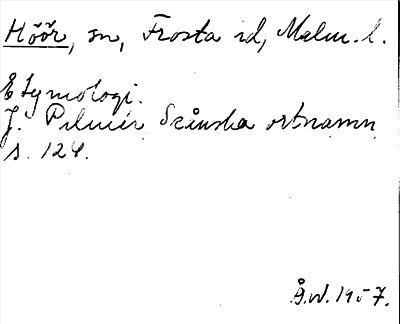 Höör, sn, Frosta hd, Malm. l.
Etymologi.
J. Palmér Skånska ortnamn
s. 124.
Å.W. 1957.